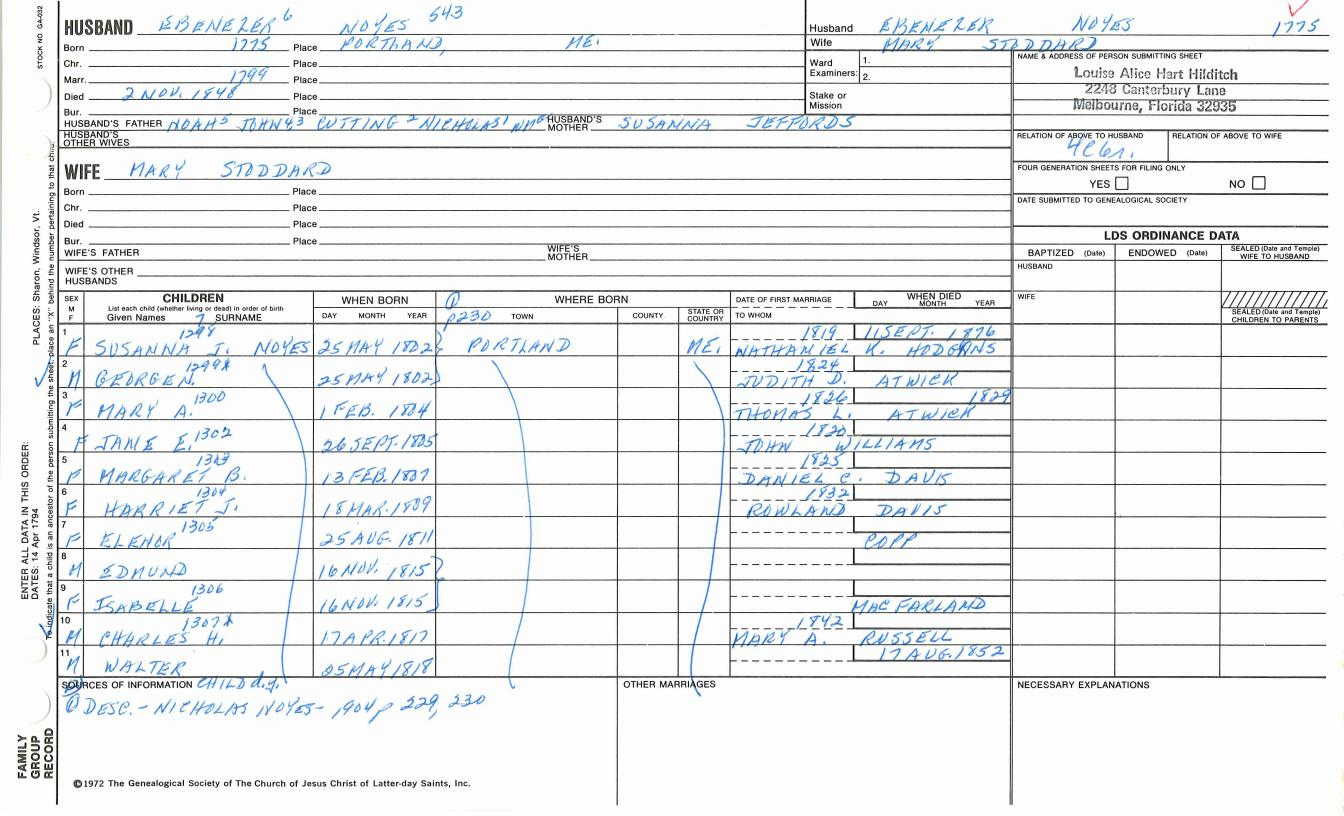 STOCK NO. GA-032
PLACES: Sharon, Windsor, Vt.
ENTER ALL DATA IN THIS ORDER:
DATES: 14 Apr 1794
To indicate that a child is an ancestor of the person submitting the sheet, place an "X" behind the number pertaining to that child.
FAMILY GROUP RECORD
HUSBAND EBENEZER 6 NOYES 543
Born 1775 Place PORTLAND, ME.
Chr. Place
Marr. 1799 Place
Died 2 NOV. 1848 Place
Bur. Place
HUSBAND'S FATHER NOAH 5 JOHN 4,3 CUTTING 2 NICHOLAS 1 HUSBAND'S MOTHER SUSANNA JEFFORDS
HUSBAND'S OTHER WIVES
WIFE MARY STODDARD
Born Place
Chr. Place
Died Place
Bur. Place
WIFE'S FATHER WIFE'S MOTHER
WIFE'S OTHER HUSBANDS
Husband EBENEZER NOYES 1775
Wife MARY STODDARD
Ward Examiners: 1. 2.
Stake or Mission
NAME & ADDRESS OF PERSON SUBMITTING SHEET
Louise Alice Hart Hilditch
2248 Canterbury Lane
Melbourne, Florida 32935
RELATION OF ABOVE TO HUSBAND RELATION OF ABOVE TO WIFE
FOUR GENERATION SHEETS FOR FILING ONLY
YES NO
DATE SUBMITTED TO GENEALOGICAL SOCIETY
LDS ORDINANCE DATA
BAPTIZED (Date) ENDOWED (Date) SEALED (Date and Temple) WIFE TO HUSBAND
HUSBAND
WIFE
SEALED (Date and Temple) CHILDREN TO PARENTS
SEX M F CHILDREN WHEN BORN WHERE BORN DATE OF FIRST MARRIAGE WHEN DIED
List each child (whether living or dead) in order of birth
Given Names 7 SURNAME DAY MONTH YEAR p230 TOWN COUNTY STATE OR COUNTRY TO WHOM DAY MONTH YEAR
1 1298 1819 11 SEPT. 1876
F SUSANNA J. NOYES 25 MAY 1802 PORTLAND ME. NATHANIEL K. HODGKINS
2 1299 1824
M GEORGE N. 25 MAY 1802 JUDITH D. ATWICK
3 1300 1826 1829
F MARY A. 1 FEB. 1804 THOMAS L. ATWICK
4 1302 1820
F JANE E. 26 SEPT. 1805 JOHN WILLIAMS
5 1303 1825
F MARGARET B. 13 FEB. 1807 DANIEL C. DAVIS
6 1304 1832
F HARRIET J. 18 MAR. 1809 ROWLAND DAVIS
7 1305
F ELENOR 25 AUG. 1811 COPP
8
M EDMUND 16 NOV. 1815
9 1306
F ISABELLE 16 NOV. 1815 MACFARLAND
10 1307 1842
M CHARLES H. 17 APR. 1817 MARY A. RUSSELL
11 17 AUG. 1852
M WALTER 25 MAY 1818
SOURCES OF INFORMATION CHILD d.y. OTHER MARRIAGES NECESSARY EXPLANATIONS
① DESC. - NICHOLAS NOYES - 1904 p 229, 230
©1972 The Genealogical Society of The Church of Jesus Christ of Latter-day Saints, Inc.